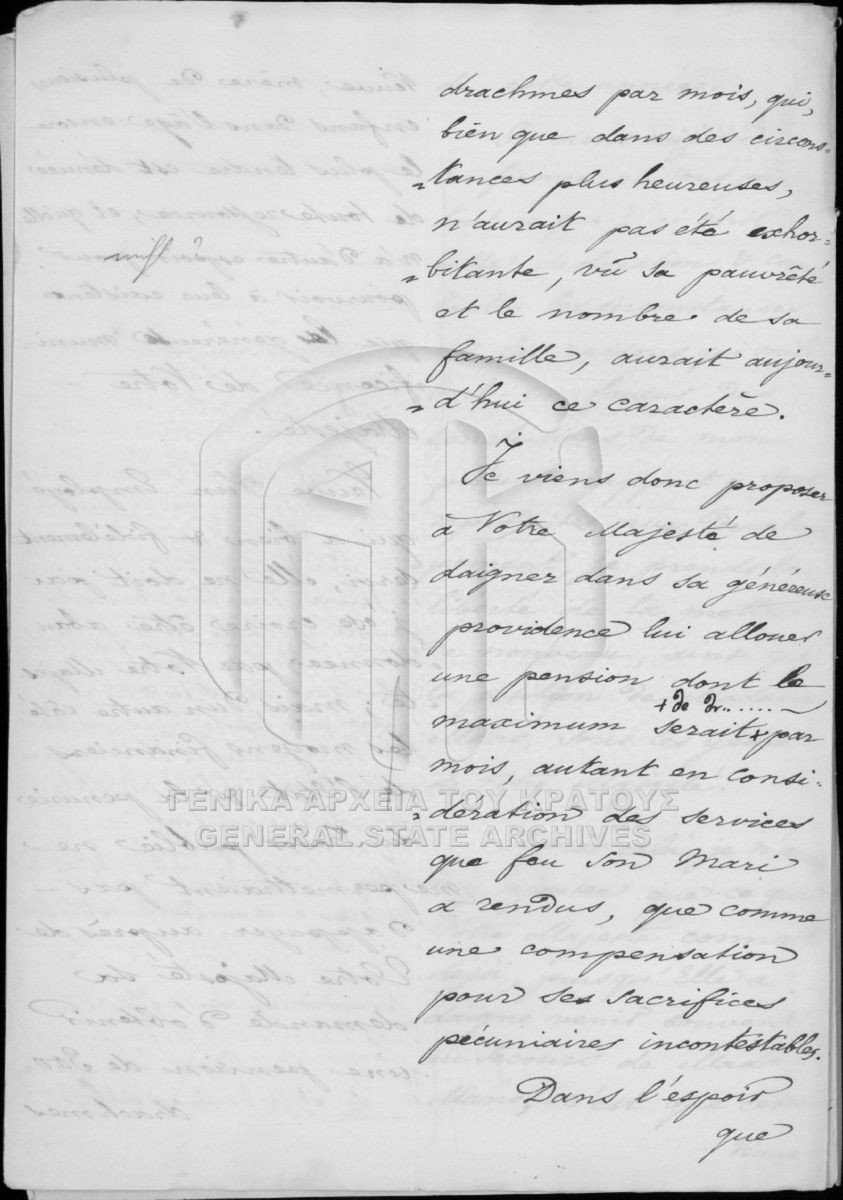 drachmes par mois, qui,
bien que dans des circons=
=tances plus heureuses,
n'aurait pas été exhor=
=bitante, vû sa pauvrêté
et le nombre de sa
famille, aurait aujour=
=d'hui ce caractère.
Je viens donc proposer
à Votre Majesté de
daigner dans sa généreuse
providence lui allouer
une pension dont le
+ de dr. ......
maximum serait + par
mois, autant en consi=
=deration des services
que feu son Mari
a rendus, que comme
une compensation
pour ses sacrifices
pécuniaires incontestables.
Dans l'espoir
que
ΓΕΝΙΚΑ ΑΡΧΕΙΑ ΤΟΥ ΚΡΑΤΟΥΣ
GENERAL STATE ARCHIVES